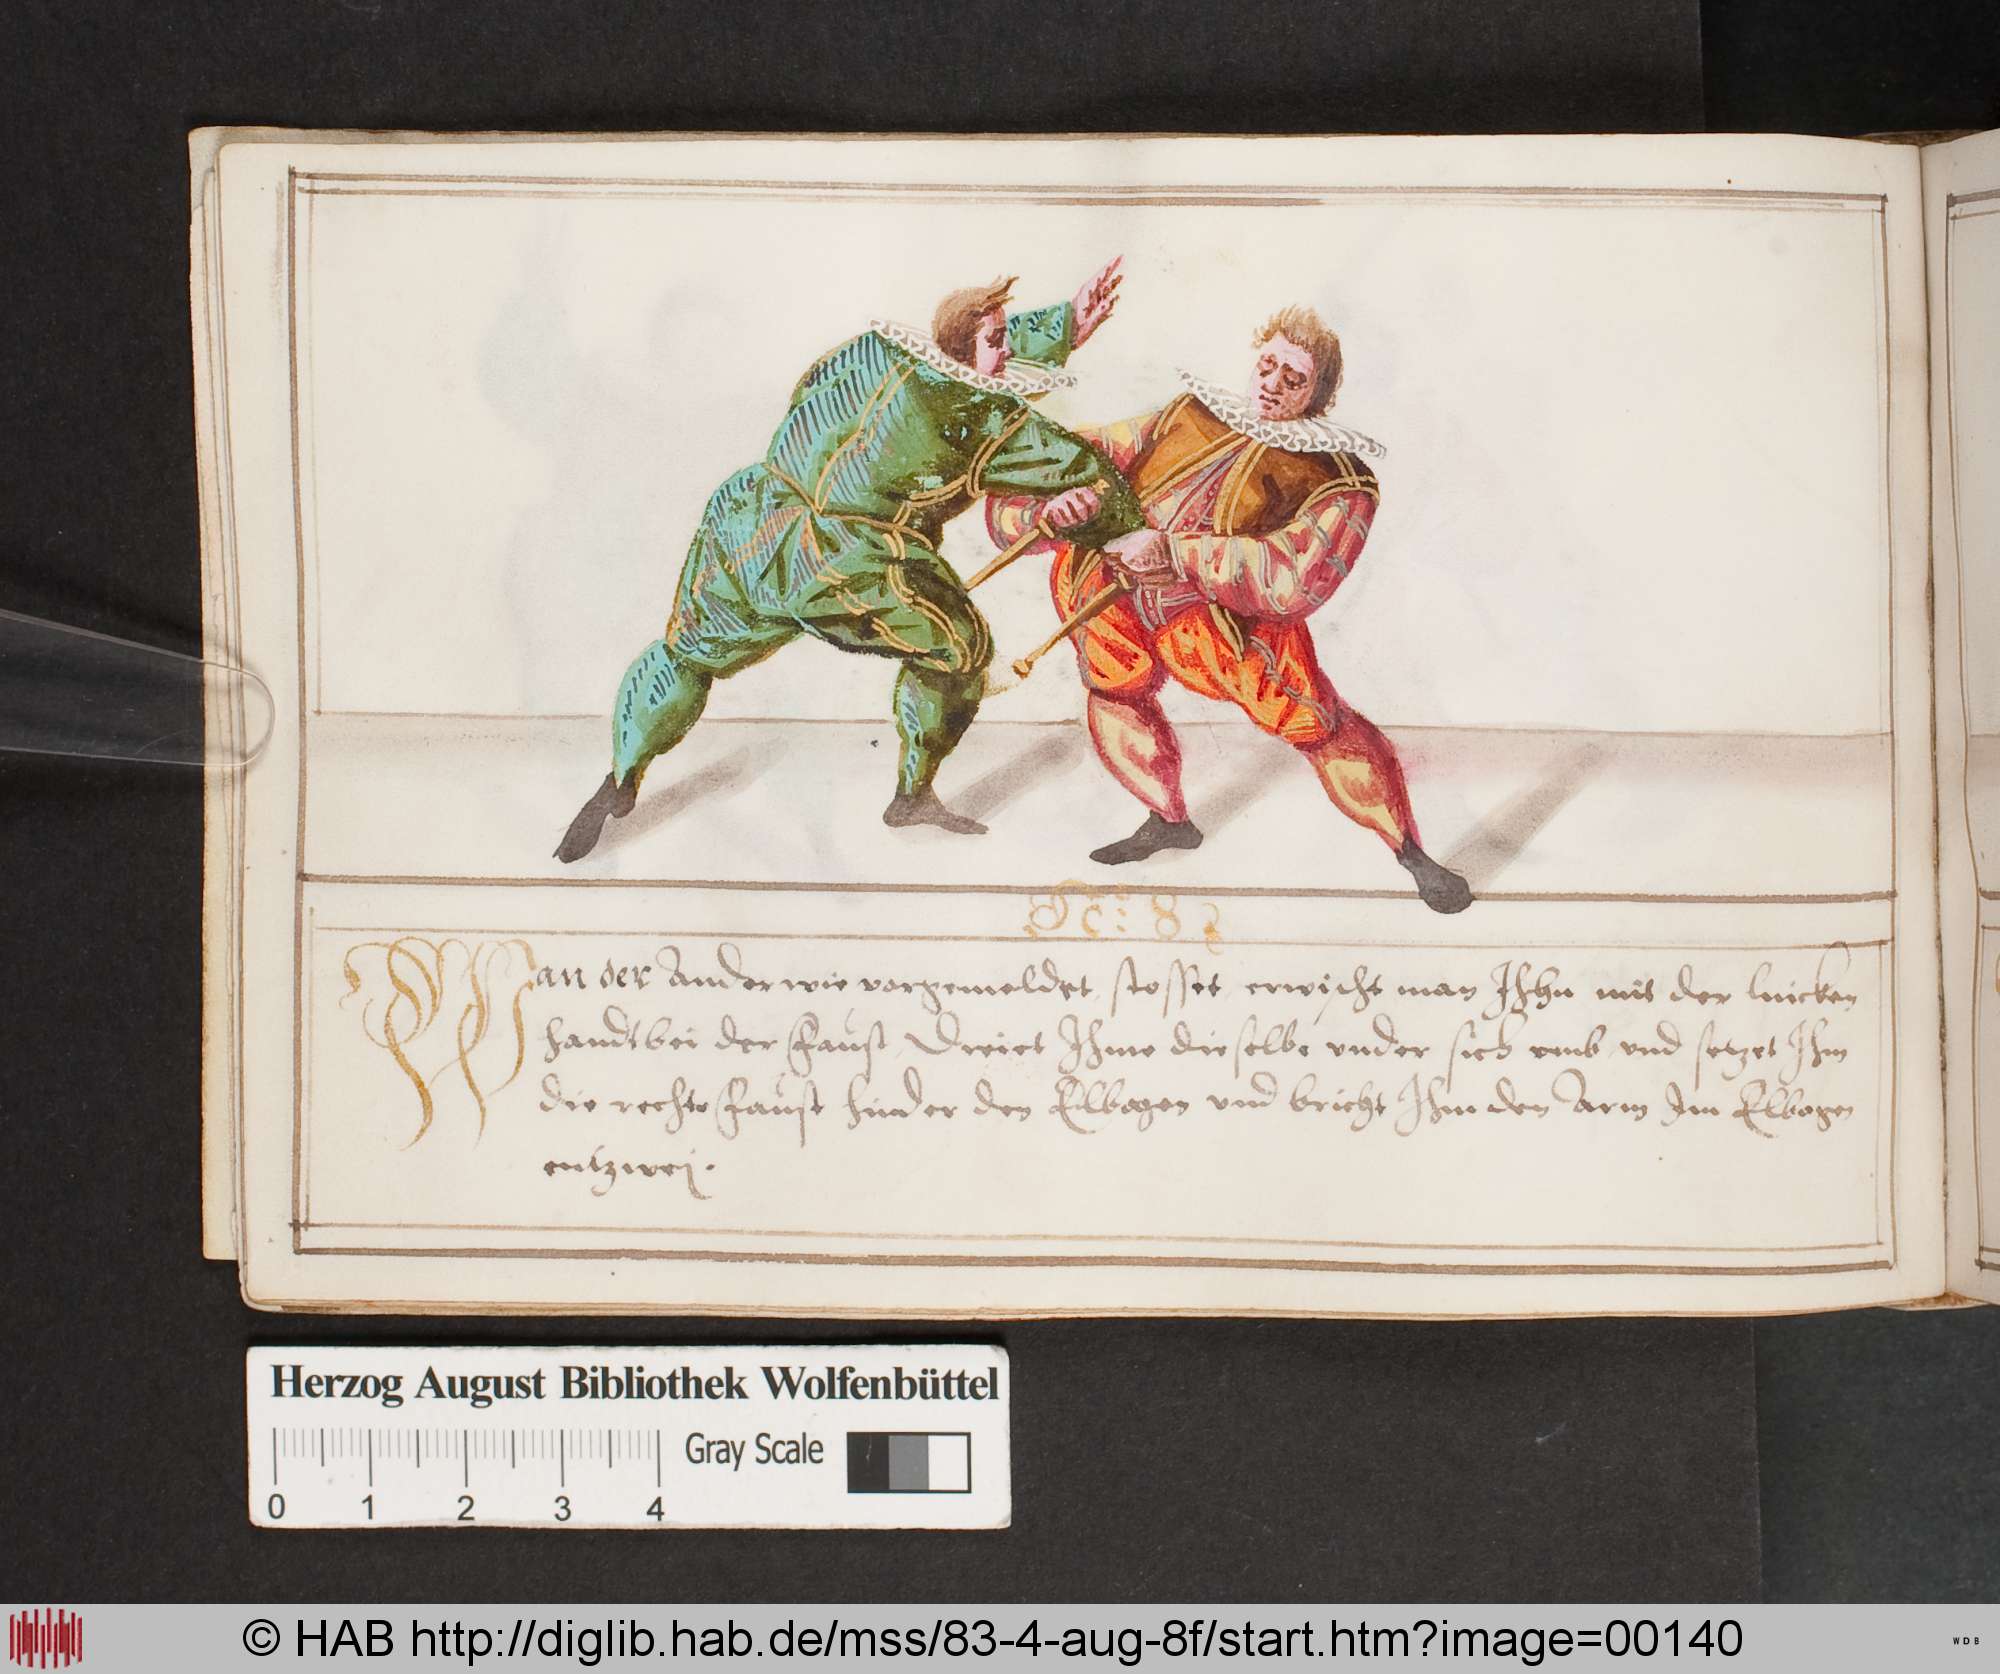 N: 8
Wan der Ander wie vorgemeldet, stosset, erwischt man Ihn mit der lincken
handt bei der Faust, Dreiet Ihme dieselbe vnder sich vmb, vnd setzet Ihm
die rechte Faust hinder den Elbogen vnd bricht Ihm den Arm Im Elbogen
entzwej.
Herzog August Bibliothek Wolfenbüttel
Gray Scale
0 1 2 3 4
© HAB http://diglib.hab.de/mss/83-4-aug-8f/start.htm?image=00140
WDB